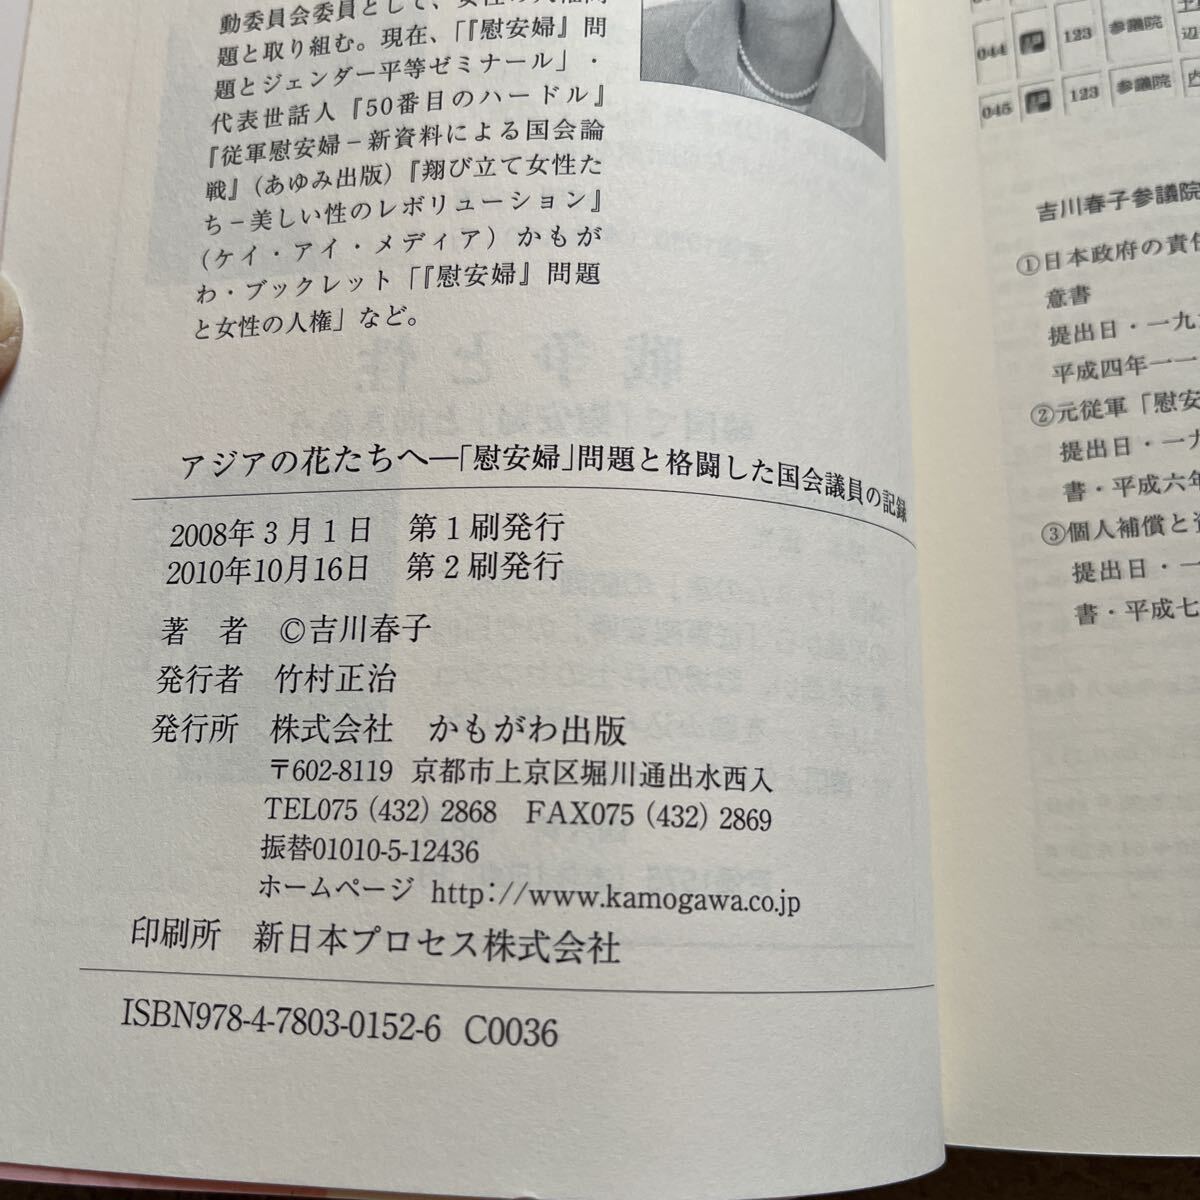 動委員会委員として、女性の人権問
題と取り組む。現在、「『慰安婦』問
題とジェンダー平等ゼミナール」・
代表世話人『50番目のハードル』
『従軍慰安婦－新資料による国会論
戦』(あゆみ出版)『翔び立て女性た
ち－美しい性のレボリューション』
(ケイ・アイ・メディア) かもが
わ・ブックレット「『慰安婦』問題
と女性の人権」など。
アジアの花たちへ―「慰安婦」問題と格闘した国会議員の記録
2008年3月1日 第1刷発行
2010年10月16日 第2刷発行
著 者 ©吉川春子
発行者 竹村正治
発行所 株式会社 かもがわ出版
〒602-8119 京都市上京区堀川通出水西入
TEL075 (432) 2868 FAX075 (432) 2869
振替01010-5-12436
ホームページ http://www.kamogawa.co.jp
印刷所 新日本プロセス株式会社
ISBN978-4-7803-0152-6 C0036
044 123 参議院
045 123 参議院 内
吉川春子参議院
①日本政府の責任
意書
提出日・一九
平成四年一一
②元従軍「慰安
提出日・一九
書・平成六年
③個人補償と
提出日・一
書・平成七